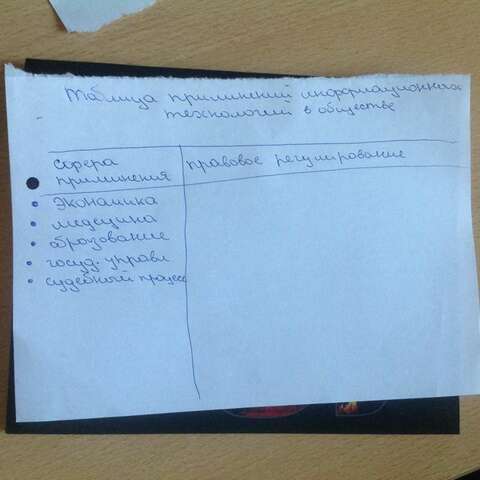 Таблица приминений информационных
технологий в обществе
Сфера
приминения
правовое регулирование
• Экономика
• медецина
• оброзование
• госуд. управл
• судебный процесс